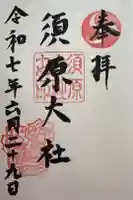 奉拝
須原大社
令和七年六月二十九日